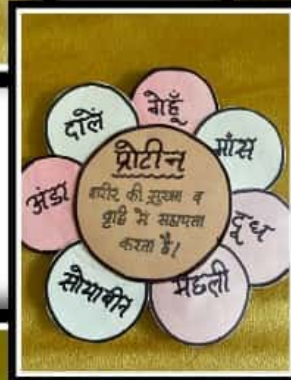 प्रोटीन
शरीर की सुरक्षा व
वृद्धि मे सहायता
करता है।
गेहूँ
माँस
दूध
मछली
सोयाबीन
अंडा
दालें